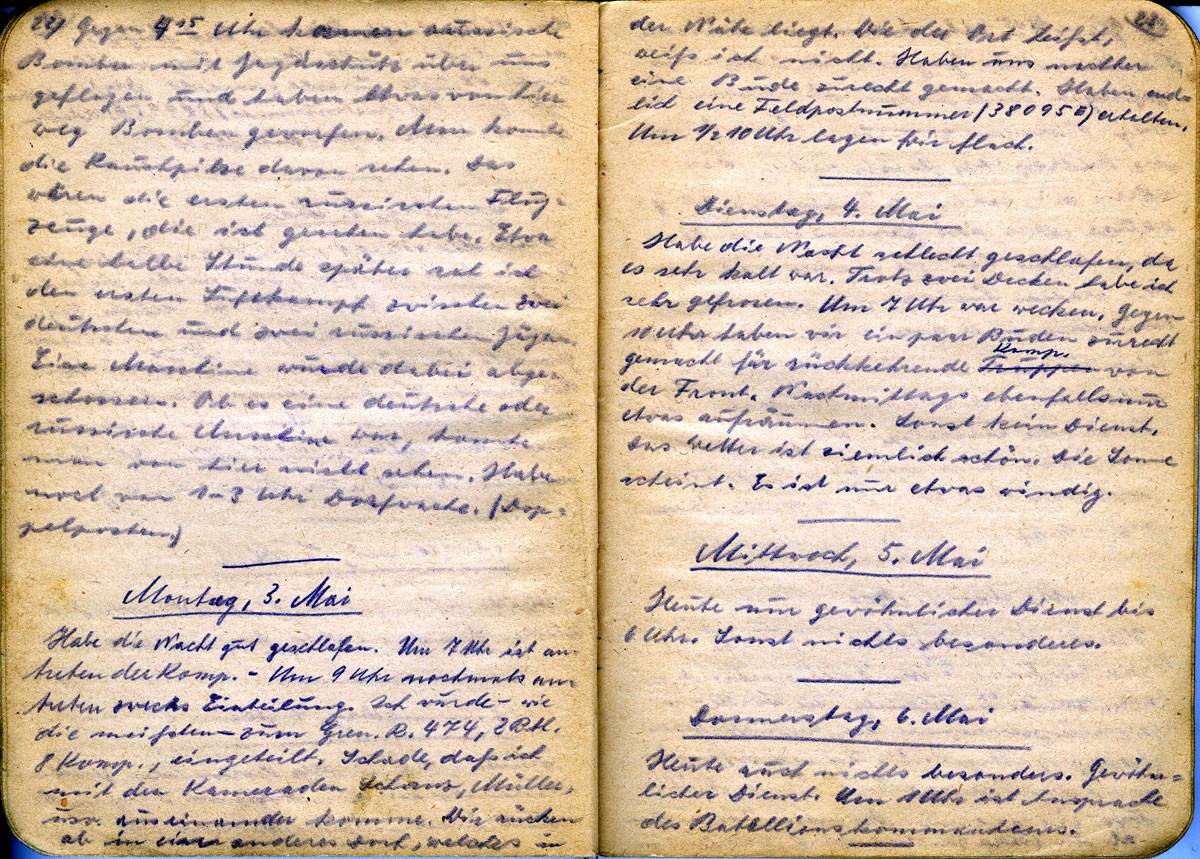 22) Gegen 4¹⁵ Uhr kamen russische
Bomber mit Jagdschutz über uns
geflogen und haben etwas von hier
weg Bomben geworfen. Man konnte
die Rauchpilze davon sehen. Das
wären die ersten russischen Flug-
zeuge, die ich gesehen habe. Etwa
eine halbe Stunde später sah ich
den ersten Luftkampf zwischen zwei
deutschen und zwei russischen Jägern
Eine Maschine wurde dabei abge-
schossen. Ob es eine deutsche oder
russische Maschine war, konnte
man von hier nicht sehen. Habe
noch von 1-3 Uhr Dorfwache. (Dop-
pelposten)
Montag, 3. Mai
Habe die Nacht gut geschlafen. Um 7 Uhr ist an-
treten der Komp. - Um 9 Uhr nochmals an-
treten zwecks Einteilung. Ich wurde - wie
die meisten - zum Gren. R. 474, 2 Btl.
8 Komp., eingeteilt. Schade, daß ich
mit den Kameraden Müller,
usw. auseinander komme. Wir rücken
ab in ein anderes Dorf, welches in
der Nähe liegt. Wie der Ort heißt,
weiß ich nicht. Haben uns nachher
eine Bude zurecht gemacht. Haben end-
lich eine Feldpostnummer (38095 ) erhalten.
Um ½ 10 Uhr lagen wir flach.
Dienstag, 4. Mai
Habe die Nacht schlecht geschlafen, da
es sehr kalt war. Trotz zwei Decken habe ich
sehr gefroren. Um 7 Uhr war wecken. Gegen
10 Uhr haben wir ein paar Buden zurecht
Komp.
gemacht für rückkehrende Truppen von
der Front. Nachmittags ebenfalls nur
etwas aufräumen. Sonst kein Dienst.
Das Wetter ist ziemlich schön. Die Sonne
scheint. Es ist nur etwas windig.
Mittwoch, 5. Mai
Heute nur gewöhnlicher Dienst bis
6 Uhr. Sonst nichts besonderes.
Donnerstag, 6. Mai
Heute auch nichts besonders. Gewöhn-
licher Dienst. Um 1 Uhr ist Ansprache
des Batallionskommandeurs.